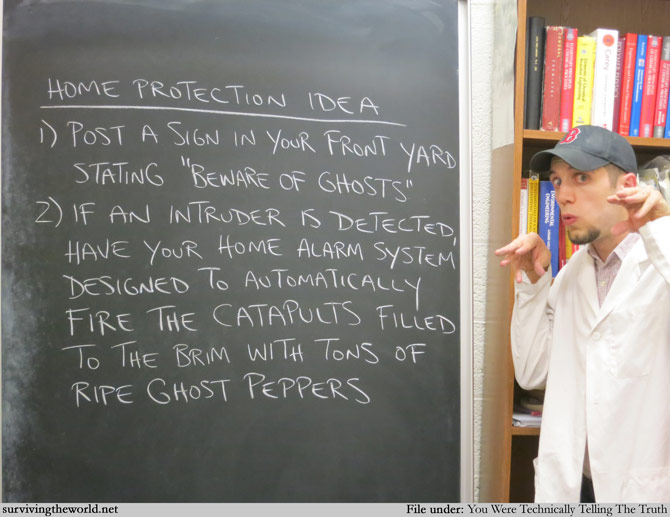 HOME PROTECTION IDEA
1) POST A SIGN IN YOUR FRONT YARD
STATING "BEWARE OF GHOSTS"
2) IF AN INTRUDER IS DETECTED,
HAVE YOUR HOME ALARM SYSTEM
DESIGNED TO AUTOMATICALLY
FIRE THE CATAPULTS FILLED
TO THE BRIM WITH TONS OF
RIPE GHOST PEPPERS
Carey
B
survivingtheworld.net
File under: You Were Technically Telling The Truth